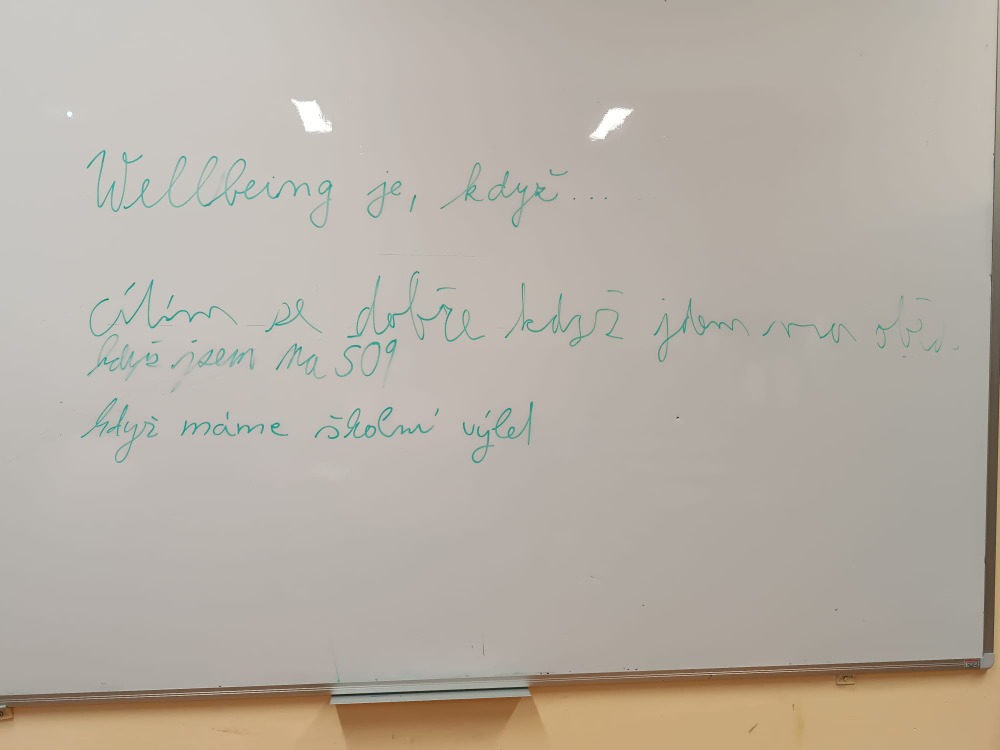 Wellbeing je, když...
cílím se dobře když jdem na oběd.
když jsem na 509
když máme školní výlet